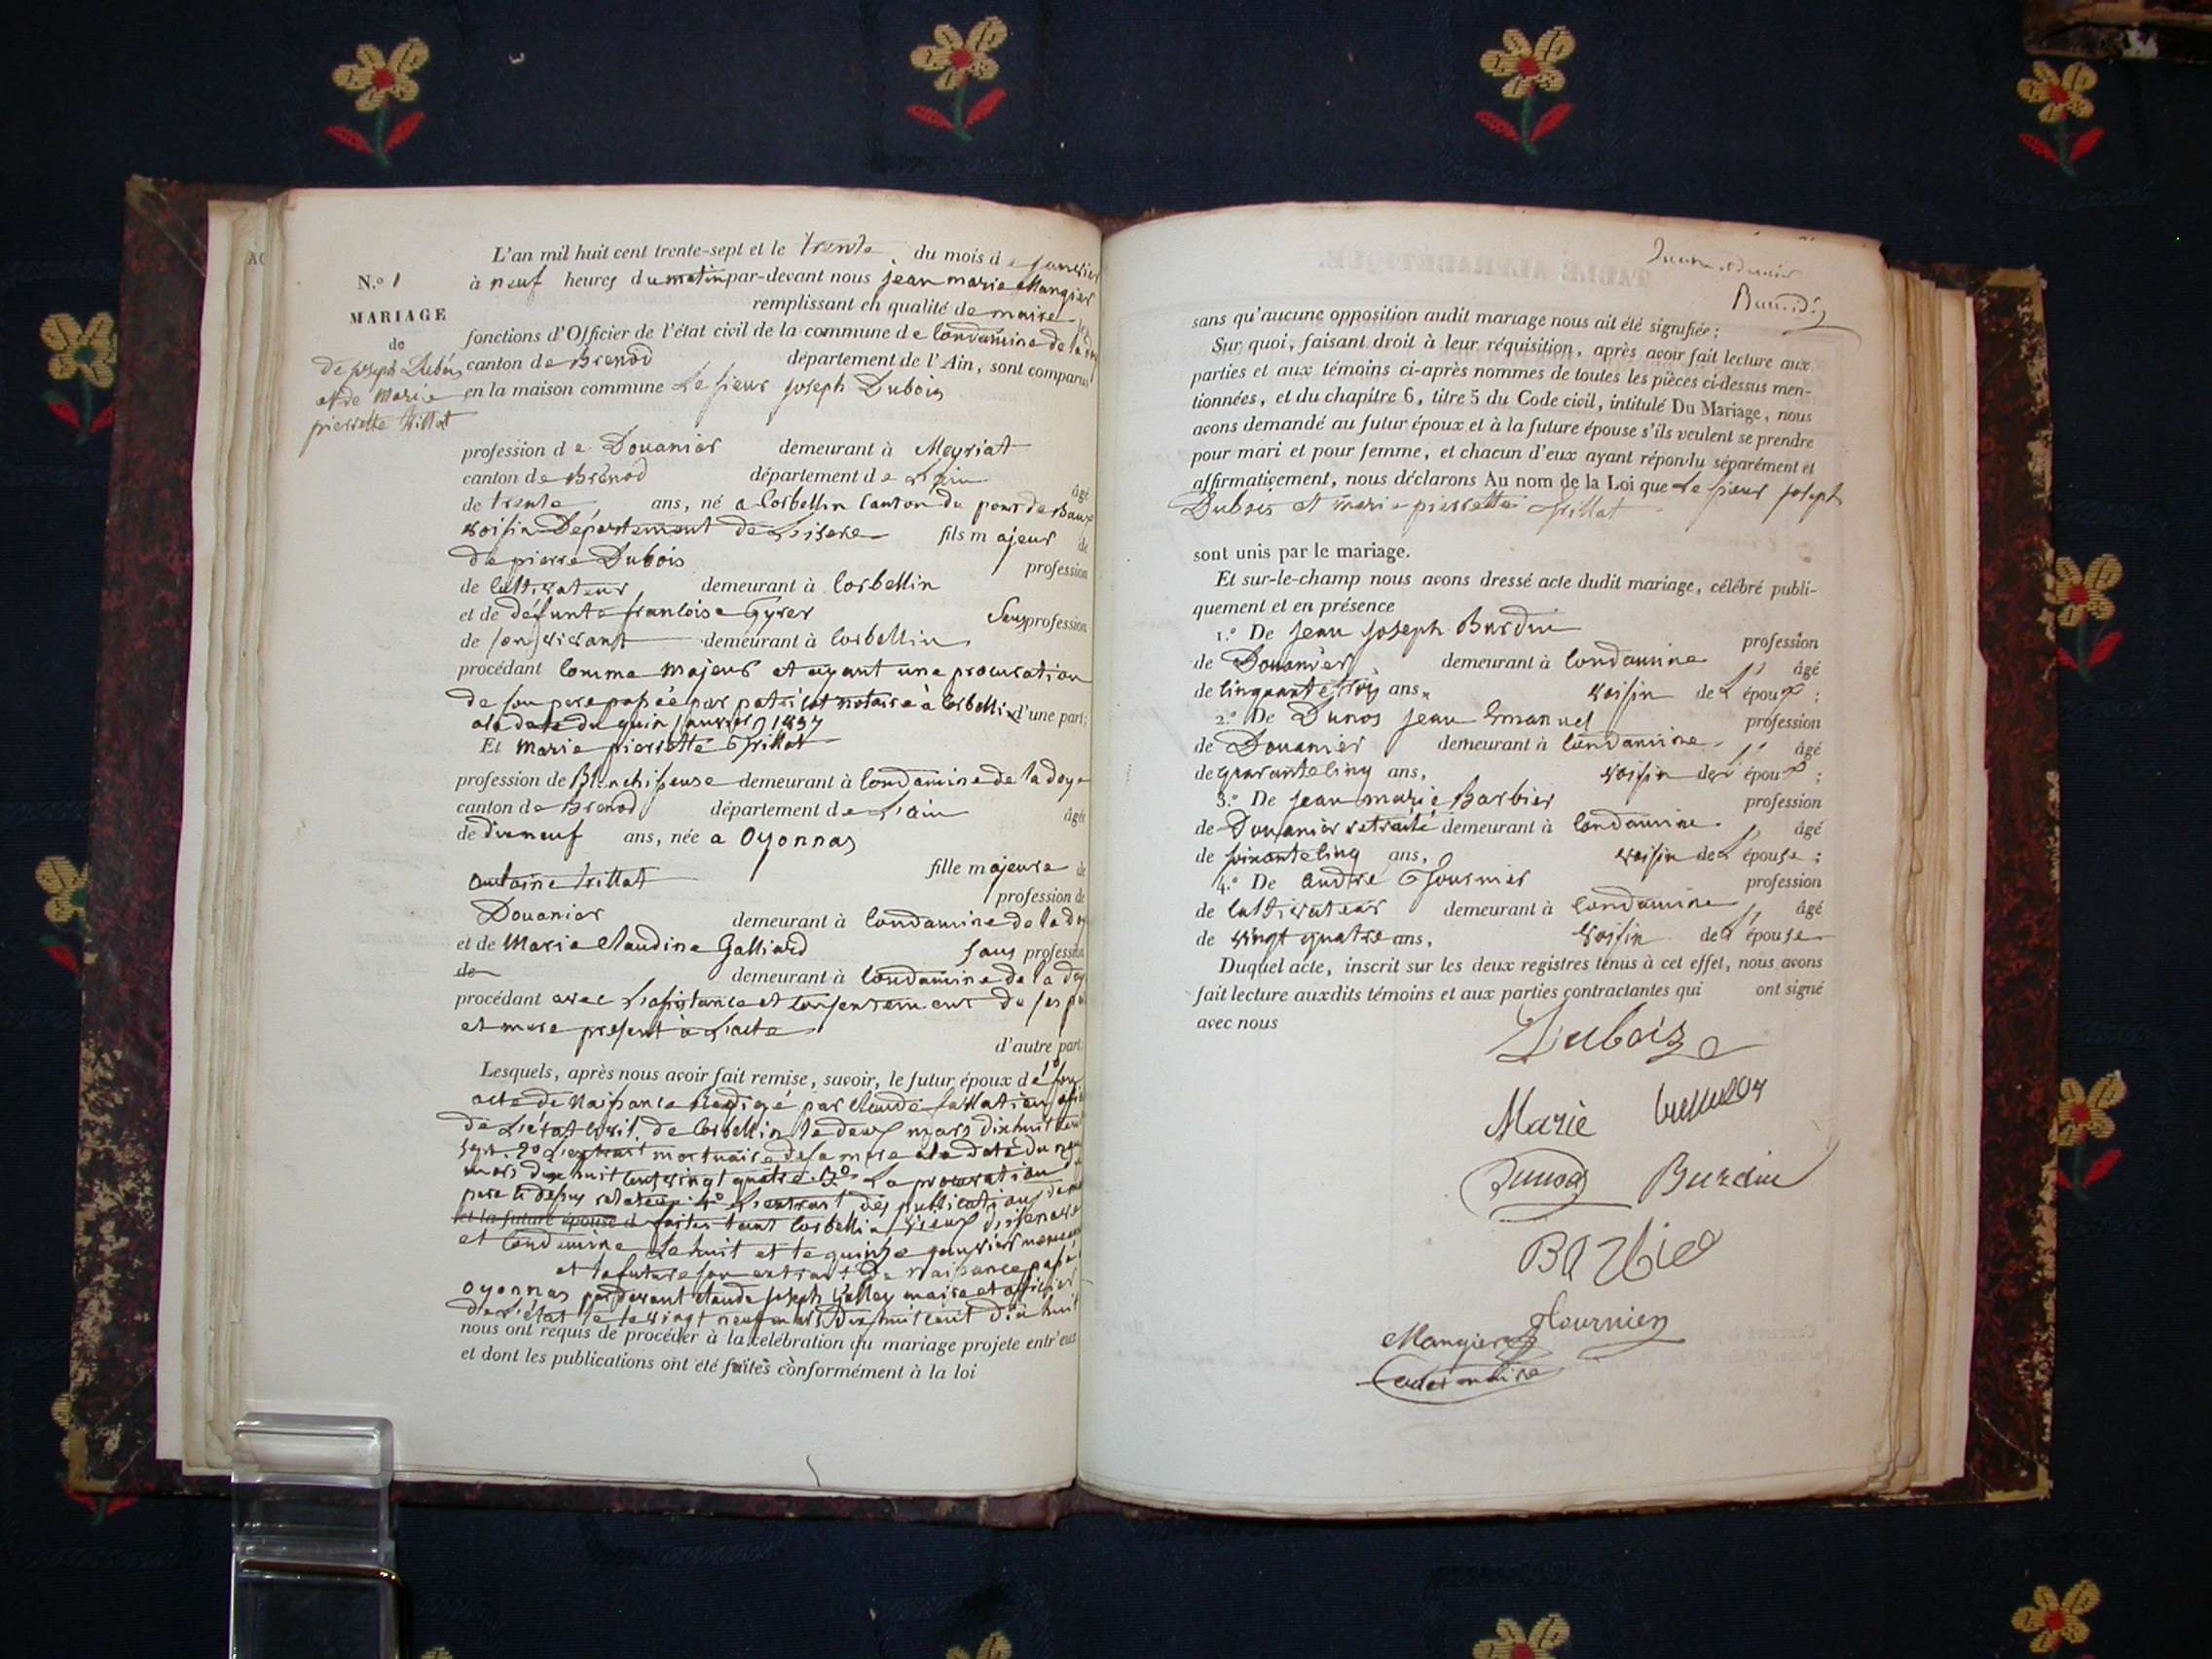 N.º 1
MARIAGE
de
de joseph Dubois
et de Marie
pierrette trillat
L'an mil huit cent trente-sept et le trente du mois de janvier
à neuf heures du matin par-devant nous jean marie Mangier
remplissant en qualité de maire les
fonctions d'Officier de l'état civil de la commune de Condamine de la doy
canton de Brenod département de l'Ain, sont comparus
en la maison commune Le sieur joseph Dubois
profession de Douanier demeurant à Meyriat
canton de Brenod département de L'ain âgé
de trente ans, né a Corbellin Canton du pont de Bauv
voisin Département de L'isere fils majeur de
de pierre Dubois profession
de Cultivateur demeurant à Corbellin
et de défunte francoise Gyrer Sans profession
de son vivant demeurant à Corbellin
procédant Comme majeur et ayant une procuration
de son pere passée par notaire à Corbellin d'une part;
a la date du janvier 1837
Et Marie pierrette Trillat
profession de Blanchisseuse demeurant à Condamine de la doye
canton de Brenod département de L'ain âgée
de dixneuf ans, née a Oyonnas
fille majeure de
antoine trillat profession de
Douanier demeurant à Condamine de la doy
et de Marie Claudine Galliard Sans profession
de demeurant à Condamine de la doy
procédant avec L'assistance et consentement de ses pe
et mere present à L'acte
d'autre part.
Lesquels, après nous avoir fait remise, savoir, le futur époux de 1º son
acte de Naissance Redigé par Claude
de L'état Civil de Corbellin le deux mars dixhuit cent
sept. 2º L'extrait mortuaire de sa mere a la date du
mars dix huit cent vingt quatre. 3º La procuration du
pere ci dessus 4º L'extrait des publications
et la future épouse d faites tant Corbellin Vieux
et Condamine Le huit et le quinze janvier
et la future son extrait de Naissance passé
Oyonnas par devant Claude joseph maire et officier
de L'état le vingt neuf mars Dixhuit cent Dix huit
nous ont requis de procéder à la célébration du mariage projeté entr'eux
et dont les publications ont été faites conformément à la loi
sans qu'aucune opposition audit mariage nous ait été signifiée;
Sur quoi, faisant droit à leur réquisition, après avoir fait lecture aux
parties et aux témoins ci-après nommés de toutes les pièces ci-dessus men-
tionnées, et du chapitre 6, titre 5 du Code civil, intitulé Du Mariage, nous
avons demandé au futur époux et à la future épouse s'ils veulent se prendre
pour mari et pour femme, et chacun d'eux ayant répondu séparément et
affirmativement, nous déclarons Au nom de la Loi que Le sieur joseph
Dubois et marie pierrette Trillat
sont unis par le mariage.
Et sur-le-champ nous avons dressé acte dudit mariage, célébré publi-
quement et en présence
1.º De jean joseph Burdin profession
de Douanier demeurant à Condamine âgé
de Cinquante ans, voisin de L'époux;
2.º De Dunos jean Emanuel profession
de Douanier demeurant à Condamine âgé
de quarante Cinq ans, voisin de L'époux;
3.º De jean marie Barbier profession
de Douanier retraité demeurant à Condamine âgé
de soixante Cinq ans, voisin de L'épouse;
4.º De andré Fournier profession
de Cultivateur demeurant à Condamine âgé
de vingt quatre ans, voisin de L'épouse
Duquel acte, inscrit sur les deux registres tenus à cet effet, nous avons
fait lecture auxdits témoins et aux parties contractantes qui ont signé
avec nous
Dubois
Marie
Dunod Burdin
Barbier
Fournier
Mangier
maire